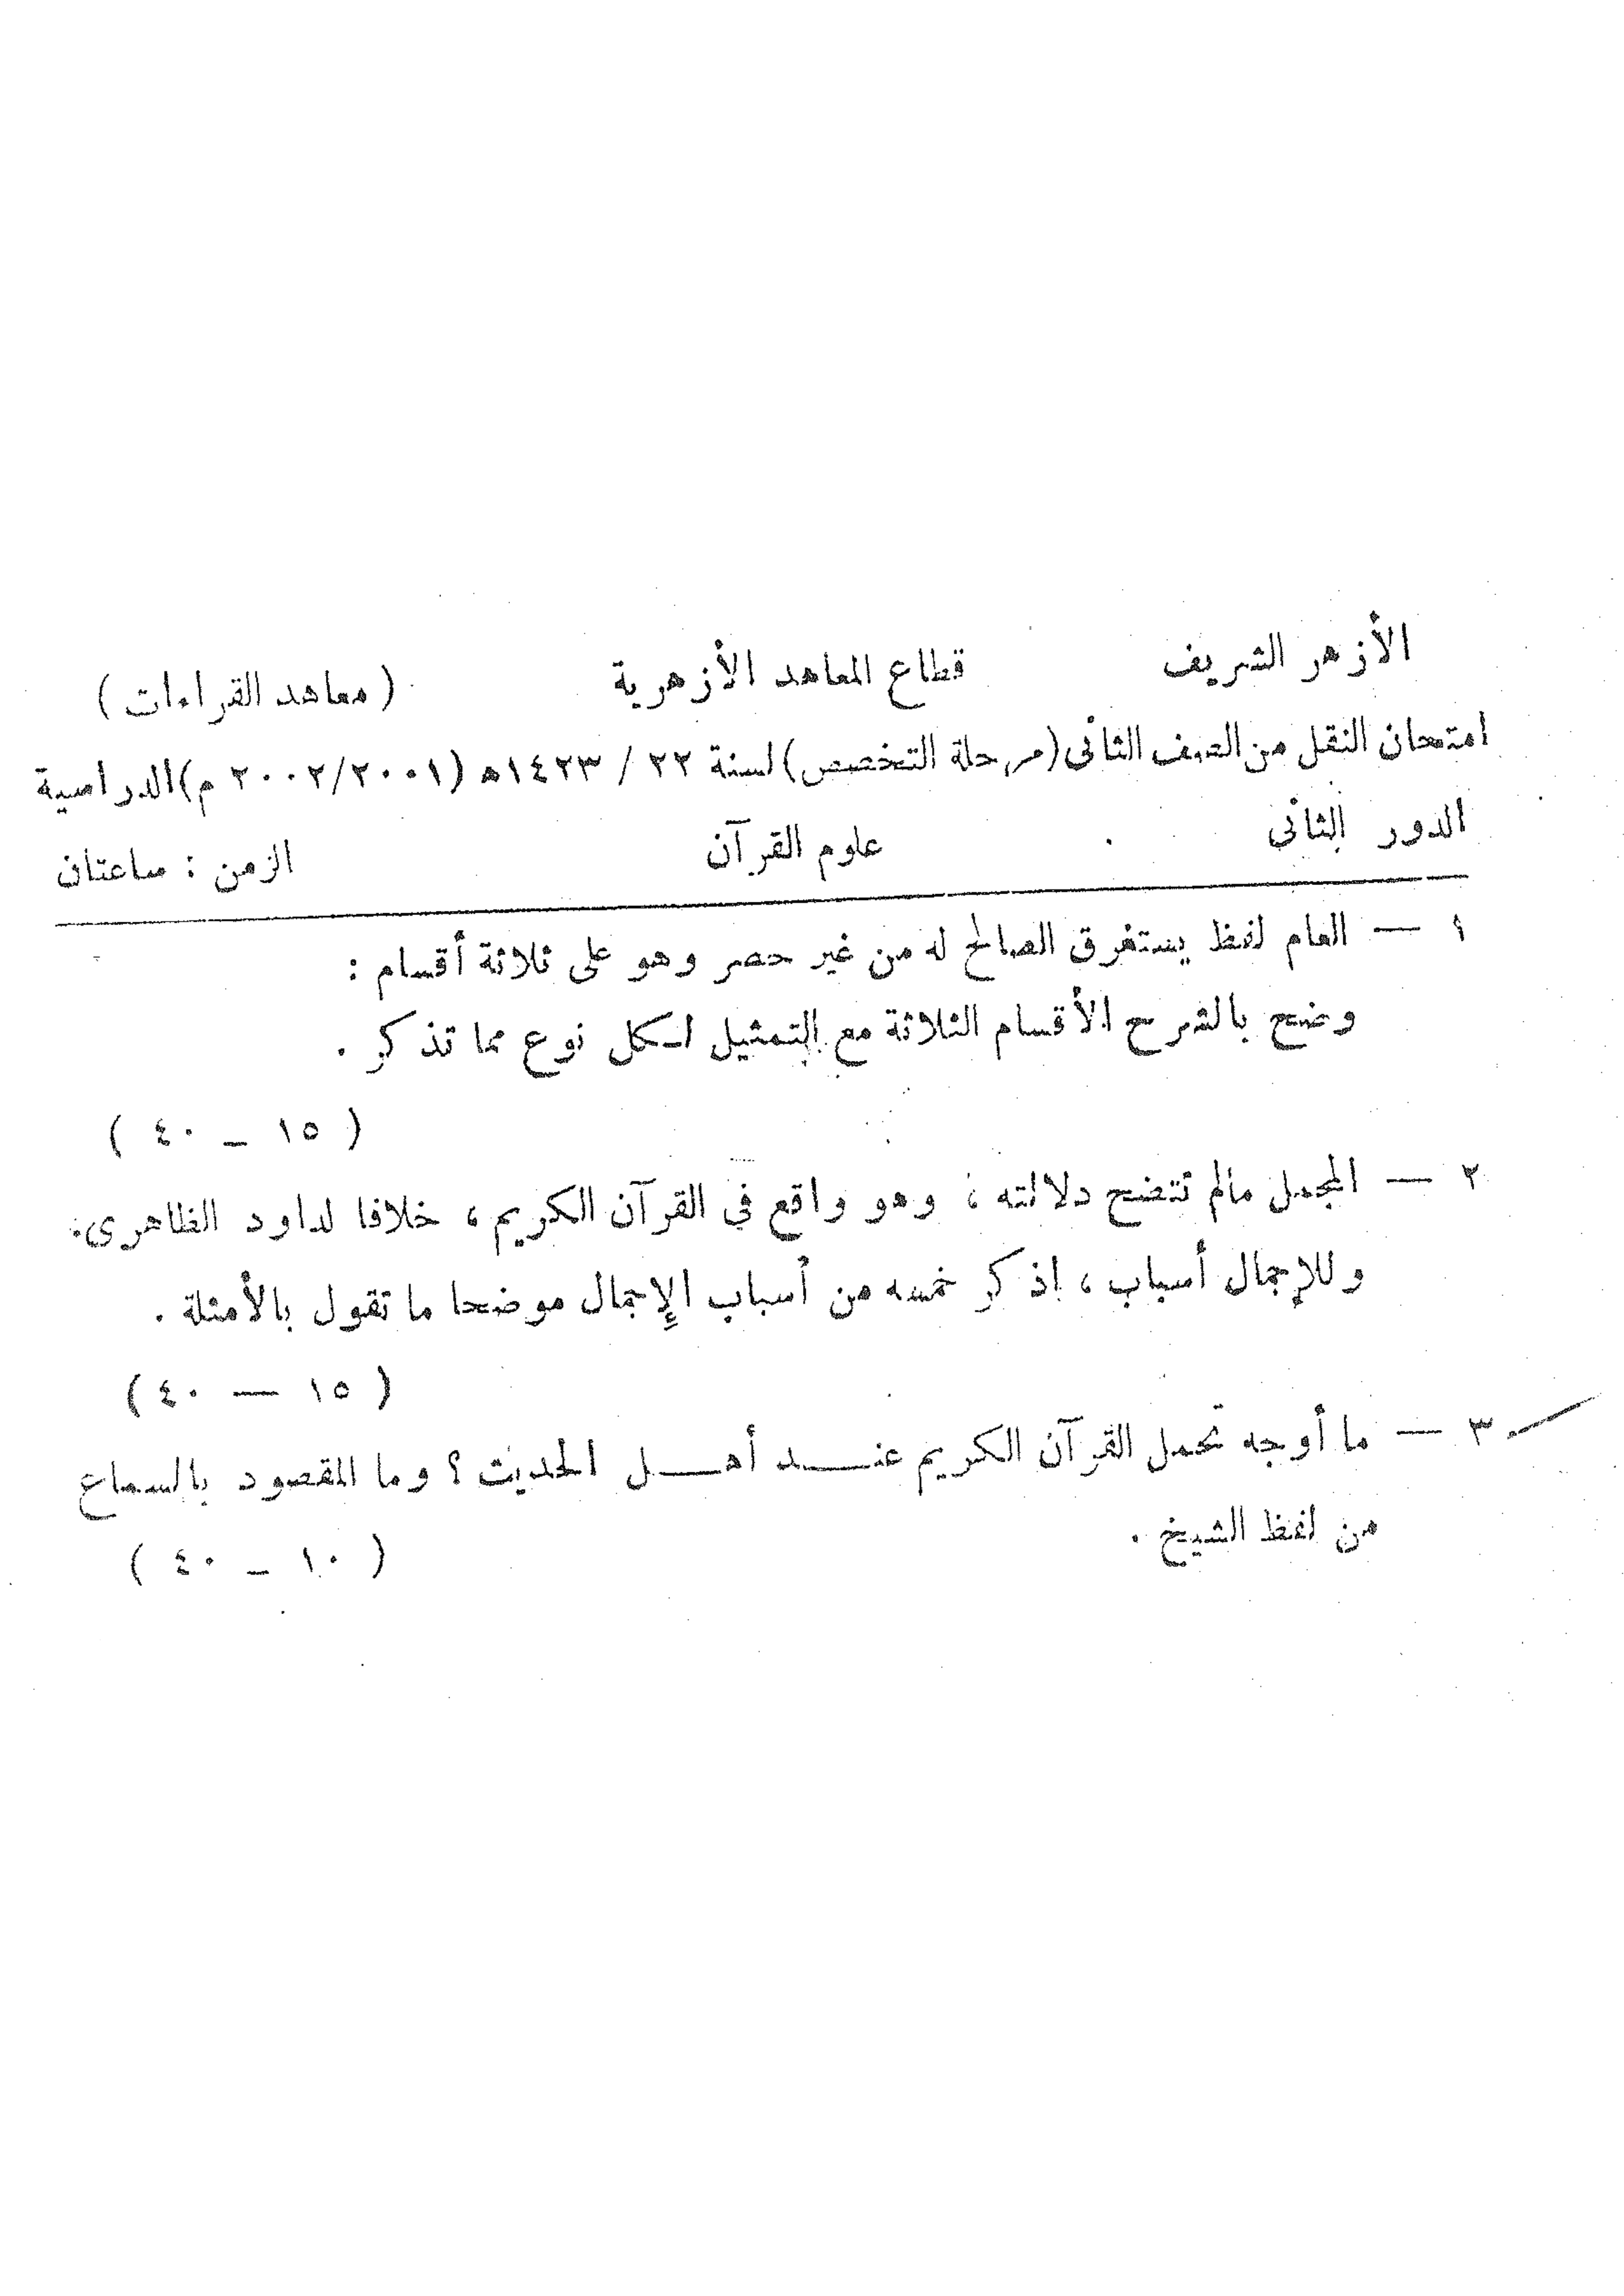 الأزهر الشريف قطاع المعاهد الأزهرية ( معاهد القراءات )
امتحان النقل من الصف الثانى (مرحلة التخصص) لسنة ٢٢ / ١٤٢٣ه (٢٠٠٢/٢٠٠١ م) الدراسية
الدور الثانى علوم القرآن الزمن : ساعتان
١ — العام لفظ يستغرق الصالح له من غير حصر وهو على ثلاثة أقسام :
وضح بالشرح الأقسام الثلاثة مع التمثيل لكل نوع مما تذكر .
( ١٥ ـ ٤٠ )
٢ — المجمل مالم تتضح دلالته ، وهو واقع في القرآن الكريم ، خلافا لداود الظاهرى.
وللإجمال أسباب ، اذكر خمسه من أسباب الإجمال موضحا ما تقول بالأمثلة .
( ١٥ — ٤٠ )
٣ — ما أوجه تحمل القرآن الكريم عنـــد أهـــل الحديث ؟ وما المقصود بالسماع
من لفظ الشيخ .
( ١٠ ـ ٤٠ )